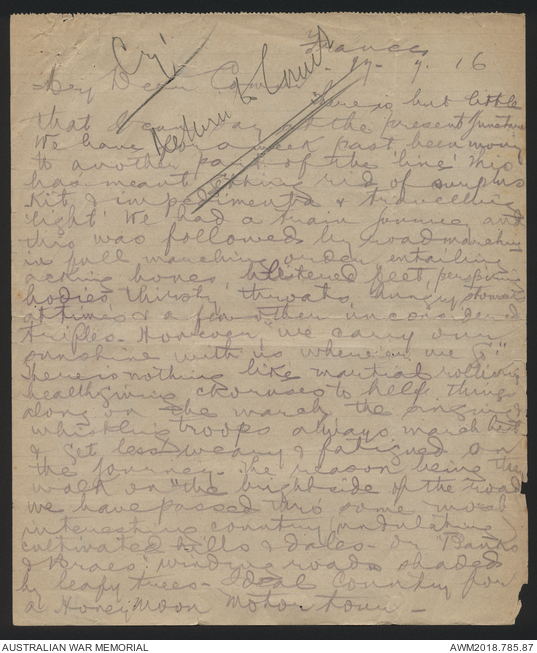 France
17. 7. 16
Cpl
Return to Court
My Dear
There is but little
that I can say at the present juncture
We have for a week past been moving
to another part of the 'line' This
has meant getting rid of surplus
Kit & impedimenta & travelling
'light' We had a train journey and
this was followed by road marching
in full marching order entailing
aching bones blistered feet, perspiring
bodies, thirsty throats, hungry stomachs
at times & a few other inconsidered
trifles. However, "we carry our
sunshine with us where'er we go"
There is nothing like martial rollicking
healthgiving choruses to help things
along on the march the singing &
whistling troops always march best
& get less weary & fatigued on
the journey. The reason being they
walk on "the bright side of the road"
We have passed thro some most
interesting country, undulating
cultivated hills & dales. Or "Banks
& Braes, winding roads shaded
by leafy trees. Ideal Country for
a Honeymoon Motor tour. -
AUSTRALIAN WAR MEMORIAL
AWM2018.785.87